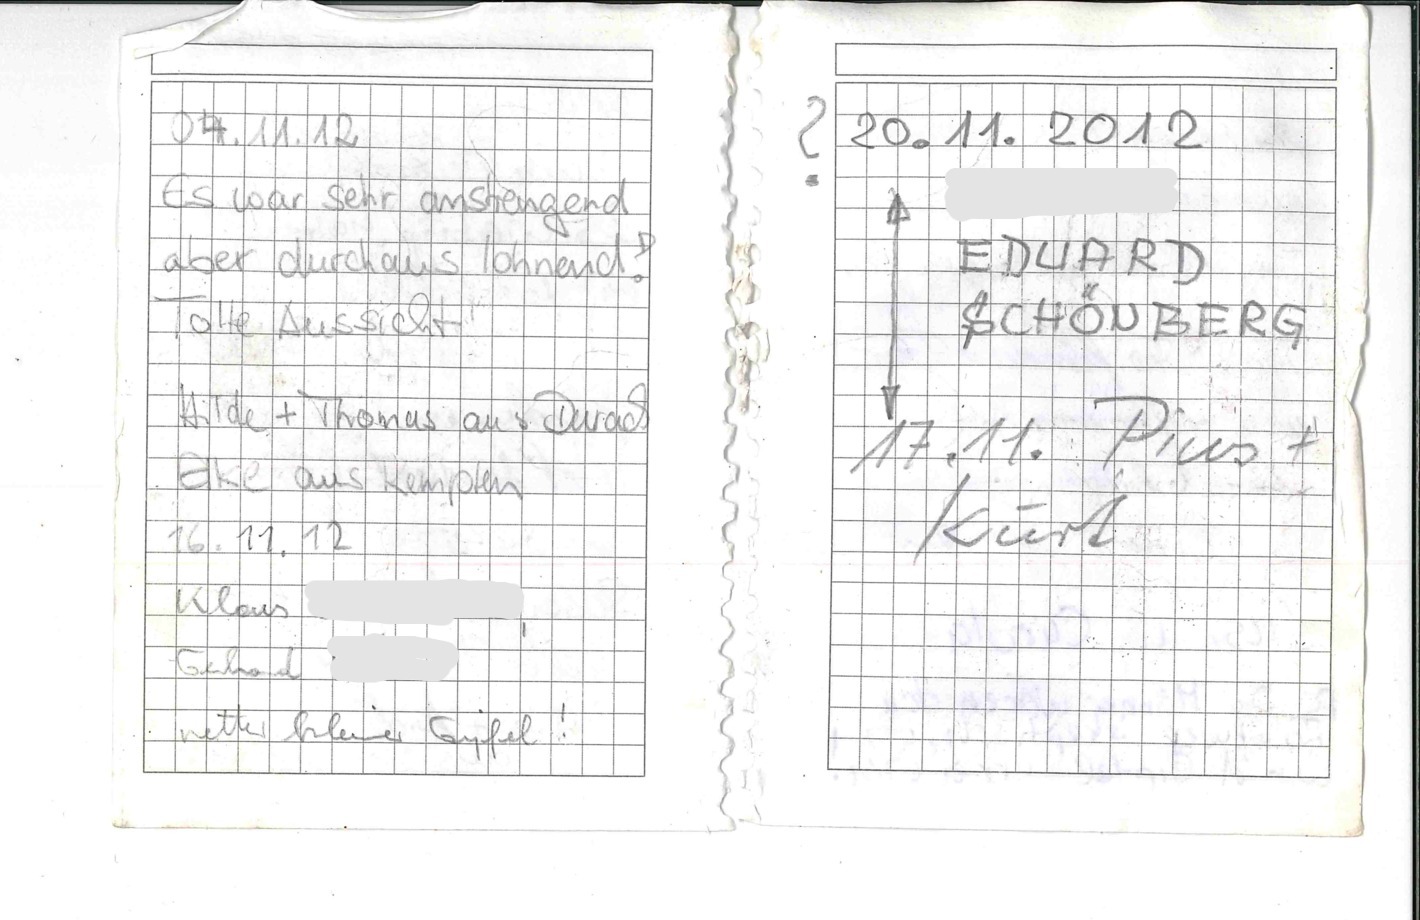 04.11.12
Es war sehr anstrengend
aber durchaus lohnend!
Tolle Aussicht!
Hilde + Thomas aus Durach
Eke aus Kempten
16.11.12
Klaus
Gerhard
netter kleiner Gipfel!
? 20.11.2012
EDUARD
SCHÖNBERG
17.11. Pius +
Kurt